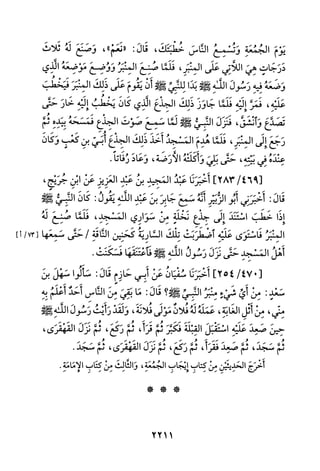 يَوْمَ الْجُمُعَةِ وَتُسْمِعُ النَّاسَ خُطْبَتَكَ، قَالَ: «نَعَمْ»، وَصَنَعَ لَهُ ثَلَاثَ
دَرَجَاتٍ هِيَ اللَّاتِي عَلَى الْمِنْبَرِ، فَلَمَّا صُنِعَ الْمِنْبَرُ وَوُضِعَ مَوْضِعَهُ الَّذِي
وَضَعَهُ فِيهِ رَسُولُ اللَّهِ ﷺ بَدَا لِلنَّبِيِّ ﷺ أَنْ يَقُومَ عَلَى ذَلِكَ الْمِنْبَرِ فَيَخْطُبَ
عَلَيْهِ، فَمَرَّ إِلَيْهِ، فَلَمَّا جَاوَزَ ذَلِكَ الْجِذْعَ الَّذِي كَانَ يَخْطُبُ إِلَيْهِ خَارَ حَتَّى
تَصَدَّعَ وَانْشَقَّ، فَنَزَلَ النَّبِيُّ ﷺ لَمَّا سَمِعَ صَوْتَ الْجِذْعِ فَمَسَحَهُ بِيَدِهِ ثُمَّ
رَجَعَ إِلَى الْمِنْبَرِ، فَلَمَّا هُدِمَ الْمَسْجِدُ أَخَذَ ذَلِكَ الْجِذْعَ أُبَيُّ بْنُ كَعْبٍ وَكَانَ
عِنْدَهُ فِي بَيْتِهِ، حَتَّى بَلِيَ وَأَكَلَتْهُ الْأَرَضَةُ، وَعَادَ رُفَاتًا.
[٢٨٣/٤٦٩] أَخْبَرَنَا عَبْدُ الْمَجِيدِ بْنُ عَبْدِ الْعَزِيزِ عَنِ ابْنِ جُرَيْجٍ،
قَالَ: أَخْبَرَنِي أَبُو الزُّبَيْرِ أَنَّهُ سَمِعَ جَابِرَ بْنَ عَبْدِ اللَّهِ يَقُولُ: كَانَ النَّبِيُّ ﷺ
إِذَا خَطَبَ اسْتَنَدَ إِلَى جِذْعِ نَخْلَةٍ مِنْ سَوَارِي الْمَسْجِدِ، فَلَمَّا صُنِعَ لَهُ
الْمِنْبَرُ فَاسْتَوَى عَلَيْهِ اضْطَرَبَتْ تِلْكَ السَّارِيَةُ كَحَنِينِ النَّاقَةِ / حَتَّى سَمِعَهَا [١/٧٣]
أَهْلُ الْمَسْجِدِ حَتَّى نَزَلَ رَسُولُ اللَّهِ ﷺ فَاعْتَنَقَهَا فَسَكَنَتْ.
[٢٥٤/٤٧٠] أَخْبَرَنَا سُفْيَانُ عَنْ أَبِي حَازِمٍ قَالَ: سَأَلُوا سَهْلَ بْنَ
سَعْدٍ: مِنْ أَيِّ شَيْءٍ مِنْبَرُ النَّبِيِّ ﷺ؟ قَالَ: مَا بَقِيَ مِنَ النَّاسِ أَحَدٌ أَعْلَمُ بِهِ
مِنِّي، مِنْ أَثْلِ الْغَابَةِ، عَمِلَهُ لَهُ فُلَانٌ مَوْلَى فُلَانَةَ، وَلَقَدْ رَأَيْتُ رَسُولَ اللَّهِ ﷺ
حِينَ صَعِدَ عَلَيْهِ اسْتَقْبَلَ الْقِبْلَةَ فَكَبَّرَ ثُمَّ قَرَأَ، ثُمَّ رَكَعَ، ثُمَّ نَزَلَ الْقَهْقَرَى،
ثُمَّ سَجَدَ، ثُمَّ صَعِدَ فَقَرَأَ، ثُمَّ رَكَعَ، ثُمَّ نَزَلَ الْقَهْقَرَى، ثُمَّ سَجَدَ.
أَخْرَجَ الْحَدِيثَيْنِ مِنْ كِتَابِ إِيجَابِ الْجُمُعَةِ، وَالثَّالِثَ مِنْ كِتَابِ الْإِمَامَةِ.
* * *
٢٢١١